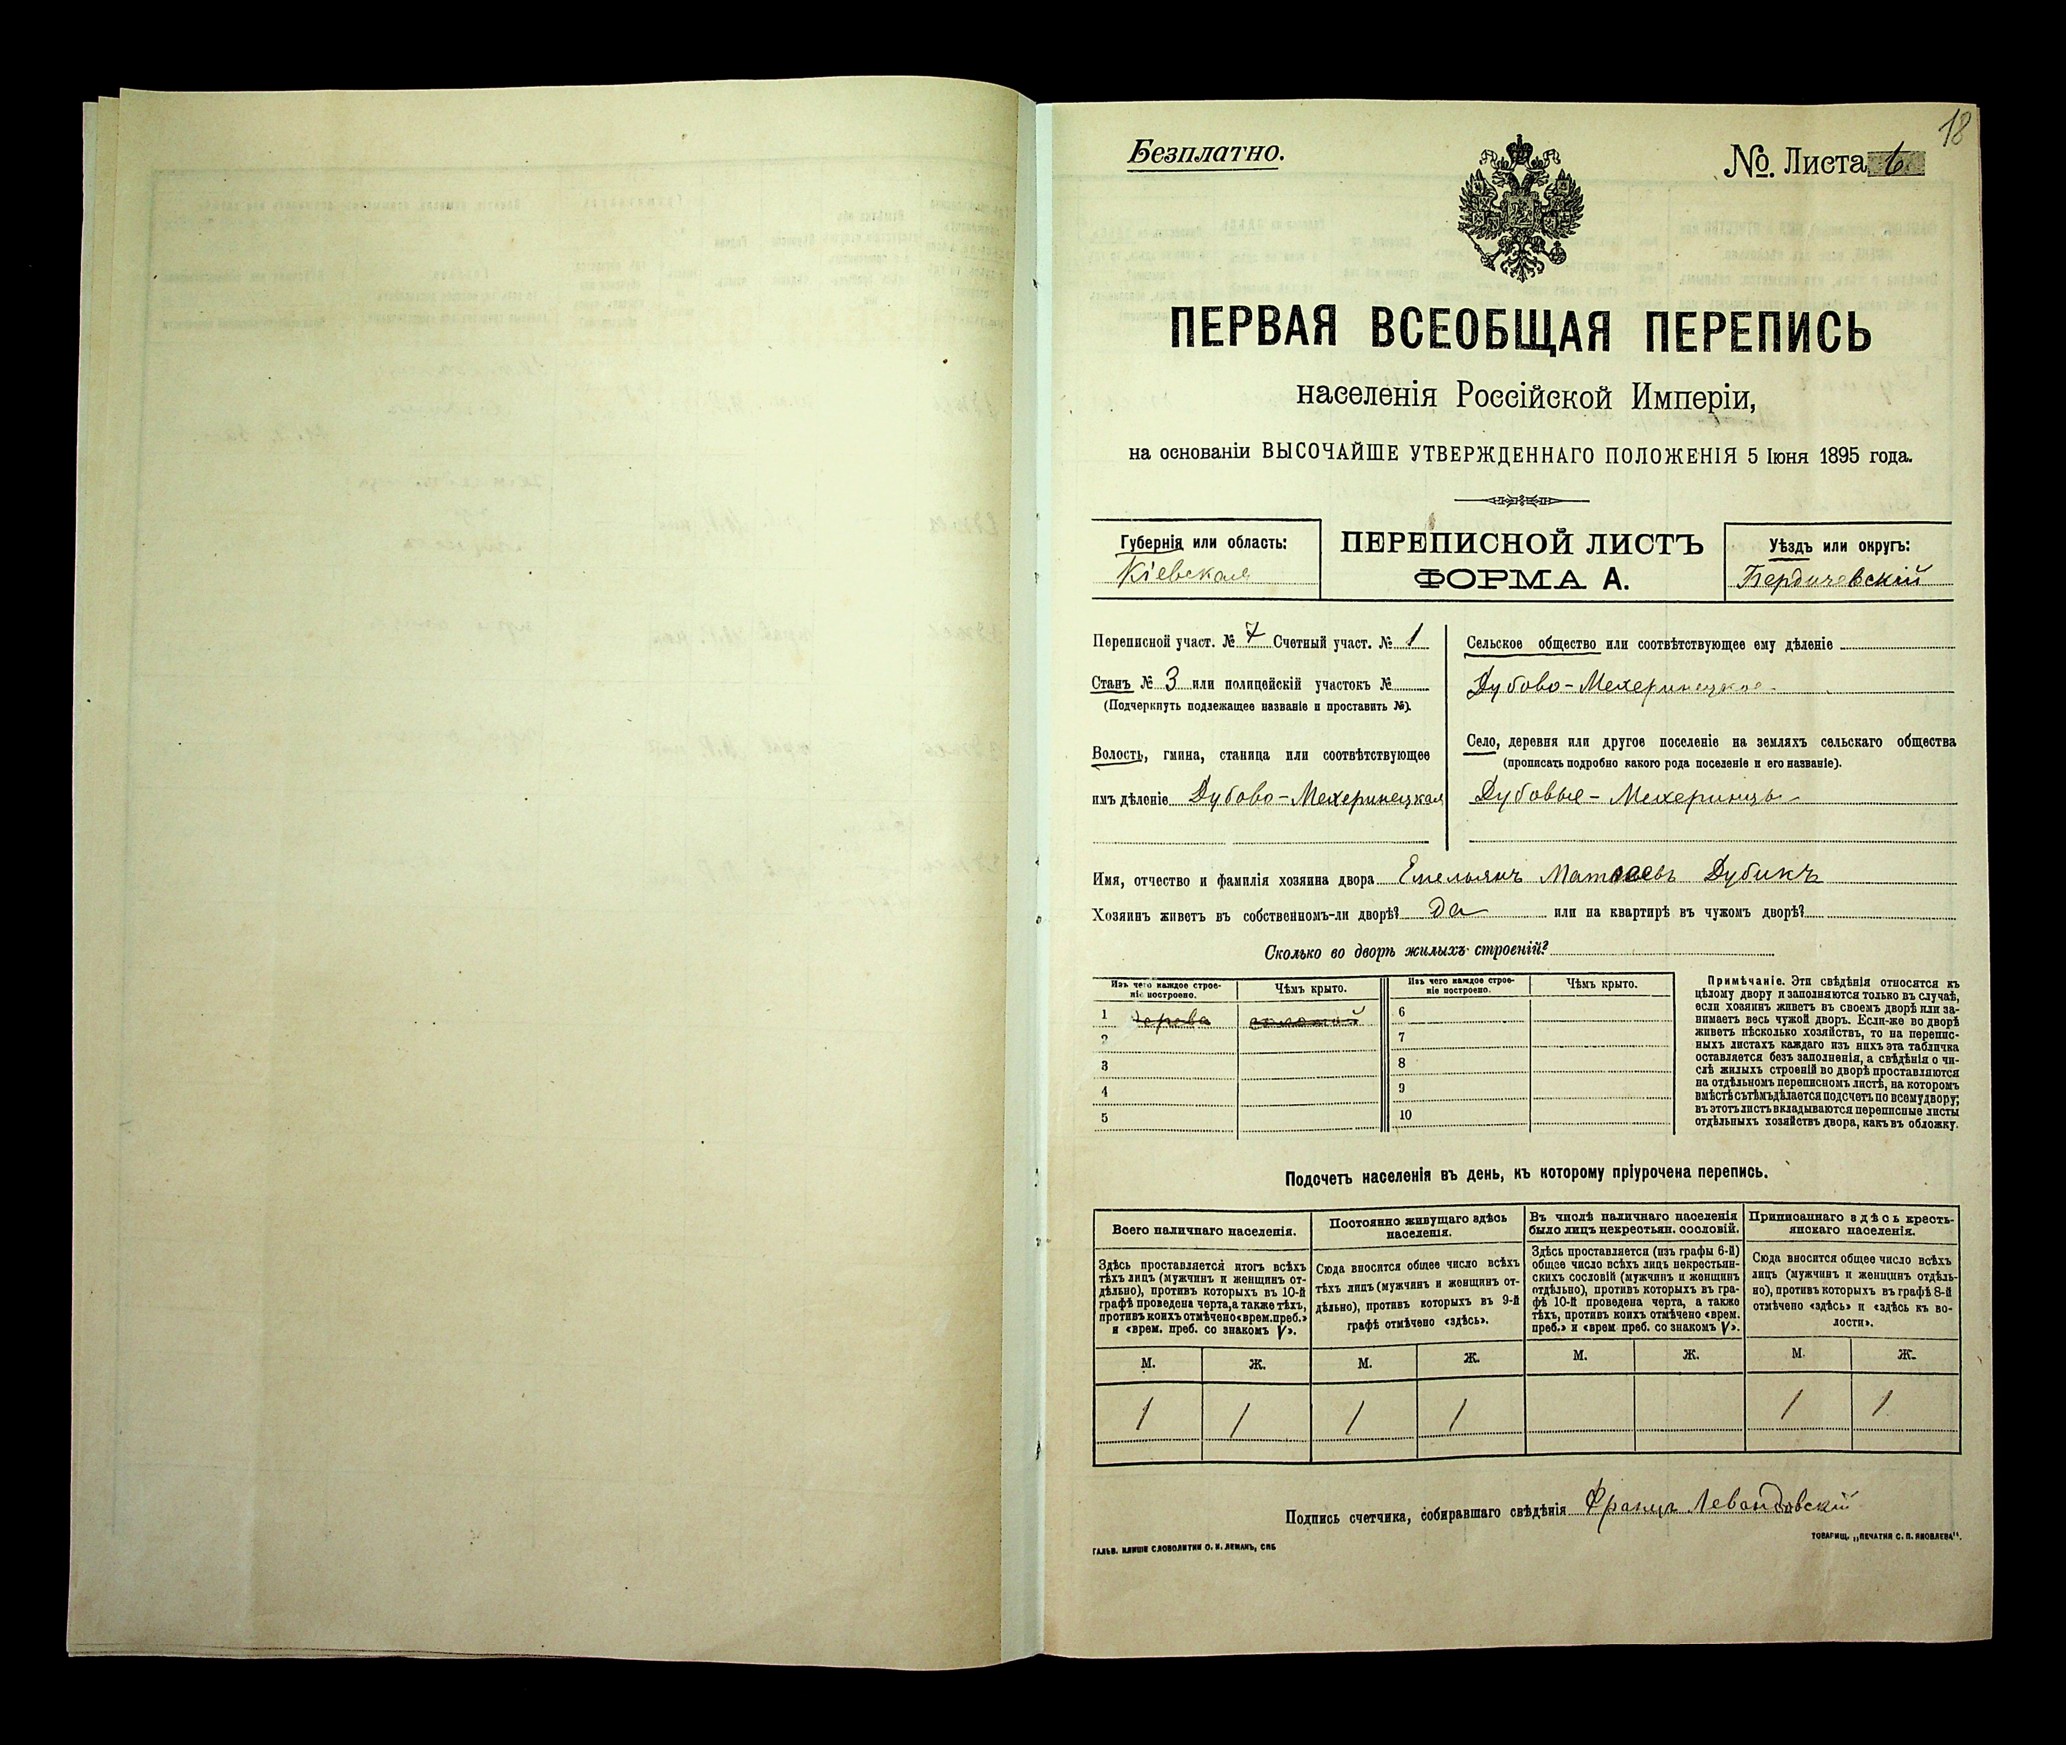 18
Безплатно.
№. Листа 6
ПЕРВАЯ ВСЕОБЩАЯ ПЕРЕПИСЬ
населенія Россійской Имперіи,
на основаніи ВЫСОЧАЙШЕ УТВЕРЖДЕННАГО ПОЛОЖЕНІЯ 5 Іюня 1895 года.
Губернія или область:
Кіевская
ПЕРЕПИСНОЙ ЛИСТЪ
ФОРМА А.
Уѣздъ или округъ:
Бердичевскій
Переписной участ. № 7 Счетный участ. № 1
Станъ № 3 или полицейскій участокъ №
(Подчеркнуть подлежащее названіе и проставить №).
Волость, гмина, станица или соотвѣтствующее
имъ дѣленіе Дубово-Мехеринецкая
Сельское общество или соотвѣтствующее ему дѣленіе
Дубово-Мехеринецкое
Село, деревня или другое поселеніе на земляхъ сельскаго общества
(прописать подробно какого рода поселеніе и его названіе).
Дубовые-Мехеринцы
Имя, отчество и фамилія хозяина двора Емельянъ Матвеевъ Дубикъ
Хозяинъ живетъ въ собственномъ-ли дворѣ? да или на квартирѣ въ чужомъ дворѣ?
Сколько во дворѣ жилыхъ строеній?
Изъ чего каждое строе-
ніе построено.
Чѣмъ крыто.
Изъ чего каждое строе-
ніе построено.
Чѣмъ крыто.
1 дерева соломой
2
3
4
5
6
7
8
9
10
Примѣчаніе. Эти свѣдѣнія относятся къ
цѣлому двору и заполняются только въ случаѣ,
если хозяинъ живетъ въ своемъ дворѣ или за-
нимаетъ весь чужой дворъ. Если-же во дворѣ
живетъ нѣсколько хозяйствъ, то на перепис-
ныхъ листахъ каждаго изъ нихъ эта табличка
оставляется безъ заполненія, а свѣдѣнія о чи-
слѣ жилыхъ строеній во дворѣ проставляются
на отдѣльномъ переписномъ листѣ, на которомъ
вмѣстѣ съ тѣмъ дѣлается подсчетъ по всему двору;
въ этотъ листъ вкладываются переписные листы
отдѣльныхъ хозяйствъ двора, какъ въ обложку.
Подсчетъ населенія въ день, къ которому пріурочена перепись.
Всего наличнаго населенія.
Здѣсь проставляется итогъ всѣхъ
тѣхъ лицъ (мужчинъ и женщинъ от-
дѣльно), противъ которыхъ въ 10-й
графѣ проведена черта, а также тѣхъ,
противъ коихъ отмѣчено «врем. преб.»
и «врем. преб. со знакомъ V».
Постоянно живущаго здѣсь
населенія.
Сюда вносится общее число всѣхъ
тѣхъ лицъ (мужчинъ и женщинъ от-
дѣльно), противъ которыхъ въ 9-й
графѣ отмѣчено «здѣсь».
Въ числѣ наличнаго населенія
было лицъ некрестьян. сословій.
Здѣсь проставляется (изъ графы 6-й)
общее число всѣхъ лицъ некрестьян-
скихъ сословій (мужчинъ и женщинъ
отдѣльно), противъ которыхъ въ гра-
фѣ 10-й проведена черта, а также
тѣхъ, противъ коихъ отмѣчено «врем.
преб.» и «врем преб. со знакомъ V».
Приписаннаго здѣсь кресть-
янскаго населенія.
Сюда вносится общее число всѣхъ
лицъ (мужчинъ и женщинъ отдѣль-
но), противъ которыхъ въ графѣ 8-й
отмѣчено «здѣсь» и «здѣсь къ во-
лости».
М. Ж. М. Ж. М. Ж. М. Ж.
1 1 1 1 1 1
Подпись счетчика, собиравшаго свѣдѣнія Францъ Левандовскій
ГАЛЬВ. КЛИШЕ СЛОВОЛИТНИ О. И. ЛЕМАНЪ, СПБ
ТОВАРИЩ. „ПЕЧАТНЯ С. П. ЯКОВЛЕВА".